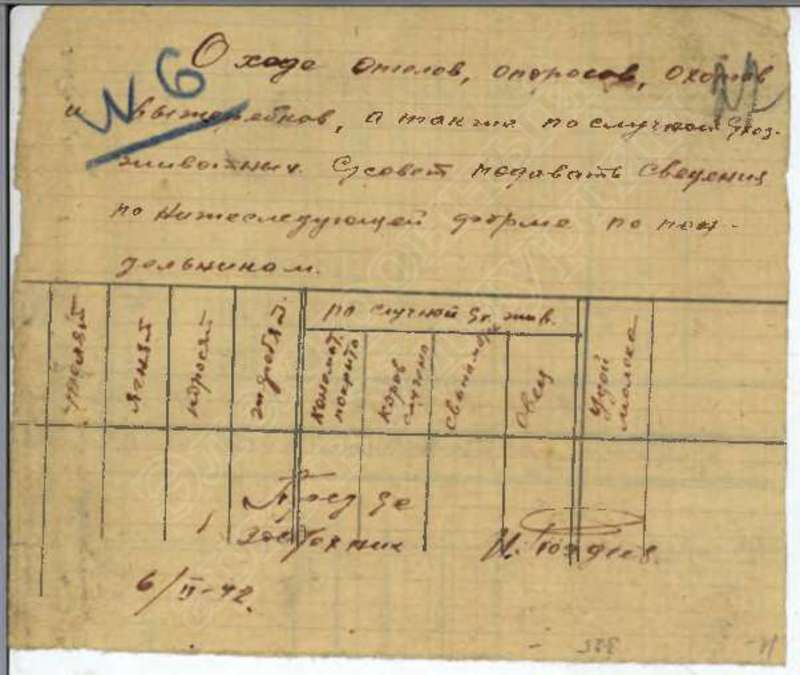 № 6
О ходе отелов, опоросов, охотов
и выжеребков, а также по случной
животных. С/совет подавать сведения
по нижеследующей форме по поне-
дельникам.
телят
ягнят
поросят
жеребят
по случной жив.
коноМат. покрыто
коров случено
свиномат.
овец
Удой молока
Пред
Зоотехник
6/II-42.